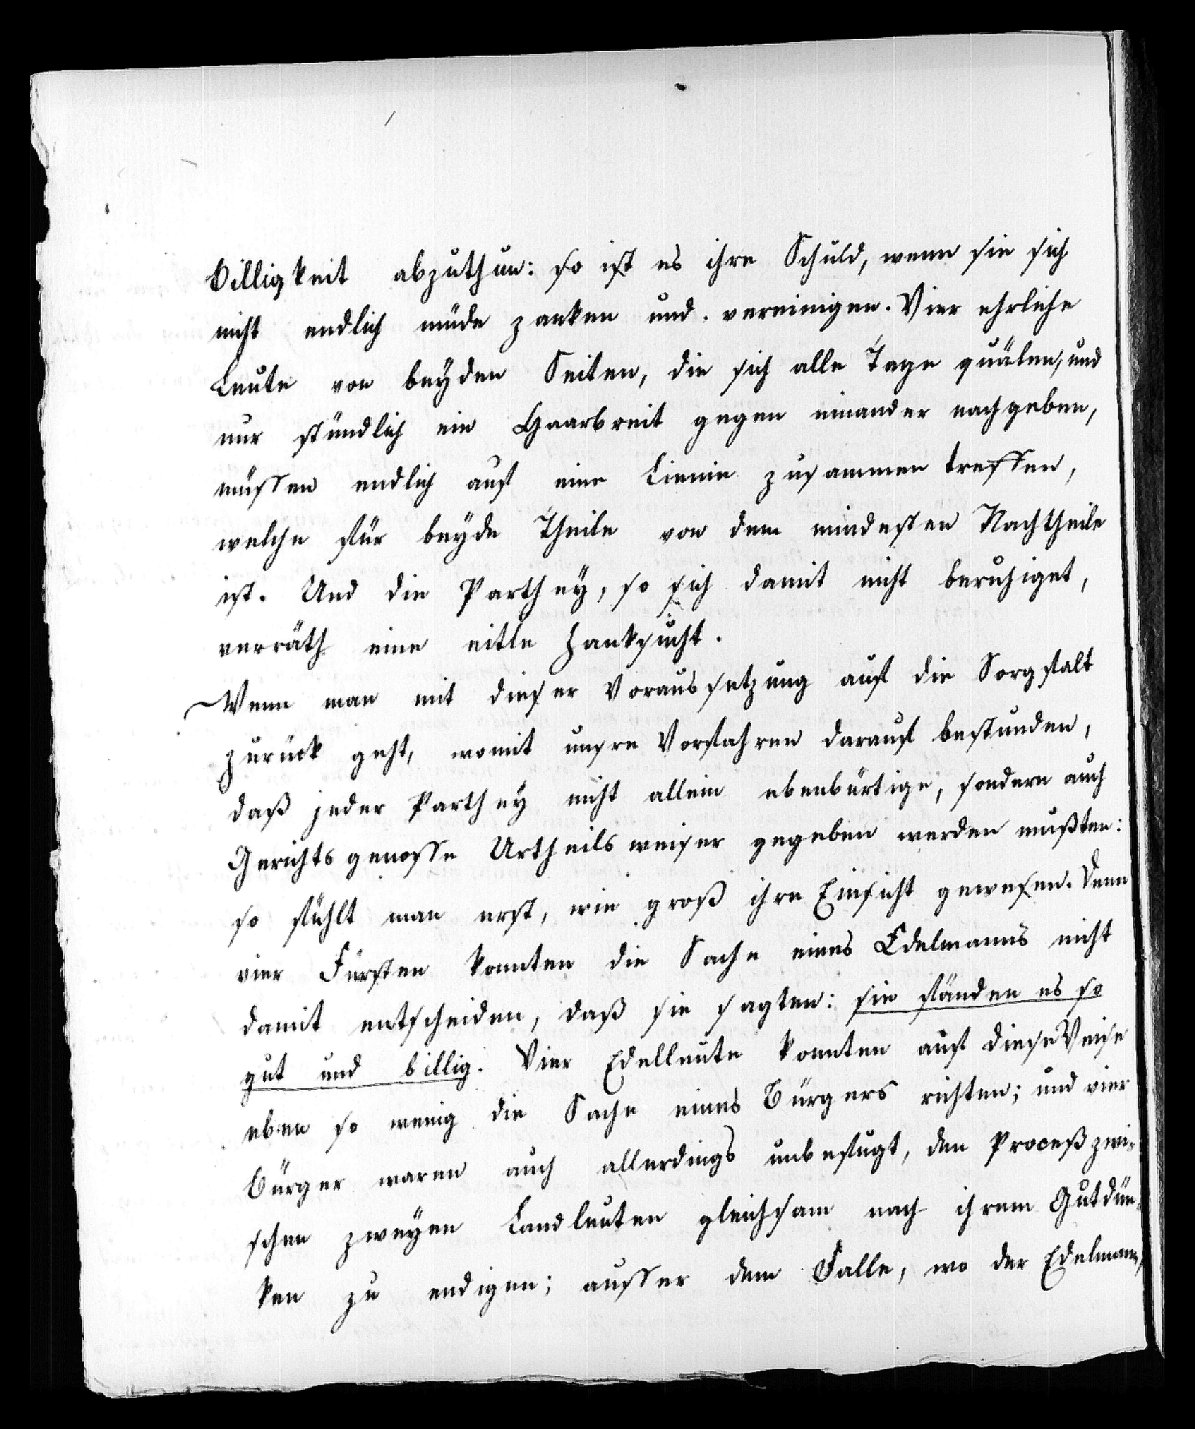 billigkeit abzuthun: so ist es ihre Schuld, wenn sie sich
nicht endlich müde zanken und vereinigen. Vier ehrliche
Leute von beyden Seiten, die sich alle Tage quälen, und
nur stündlich ein Haarbreit gegen einander nachgeben,
müssen endlich auf eine Linie zusammen treffen,
welche für beyde Theile von dem mindesten Nachtheile
ist. Und die Parthey, so sich damit nicht beruhiget,
verräth eine eitle Zanksucht.
Wenn man mit dieser Voraussetzung auf die Sorgfalt
zurück geht, womit unsre Vorfahren darauf bestunden,
daß jeder Parthey nicht allein ebenbürtige, sondern auch
Gerichtsgenosse Urtheilsweiser gegeben werden mußten:
so fühlt man erst, wie groß ihre Einsicht gewesen. Denn
vier Fürsten konnten die Sache eines Edelmanns nicht
damit entscheiden, daß sie sagten: sie fänden es so
gut und billig. Vier Edelleute konnten auf diese Weise
eben so wenig die Sache eines Bürgers richten; und vier
Bürger waren auch allerdings unbefugt, den Proceß zwi-
schen zweyen Landleuten gleichsam nach ihrem Gutdün-
ken zu endigen; ausser dem Falle, wo der Edelmann,